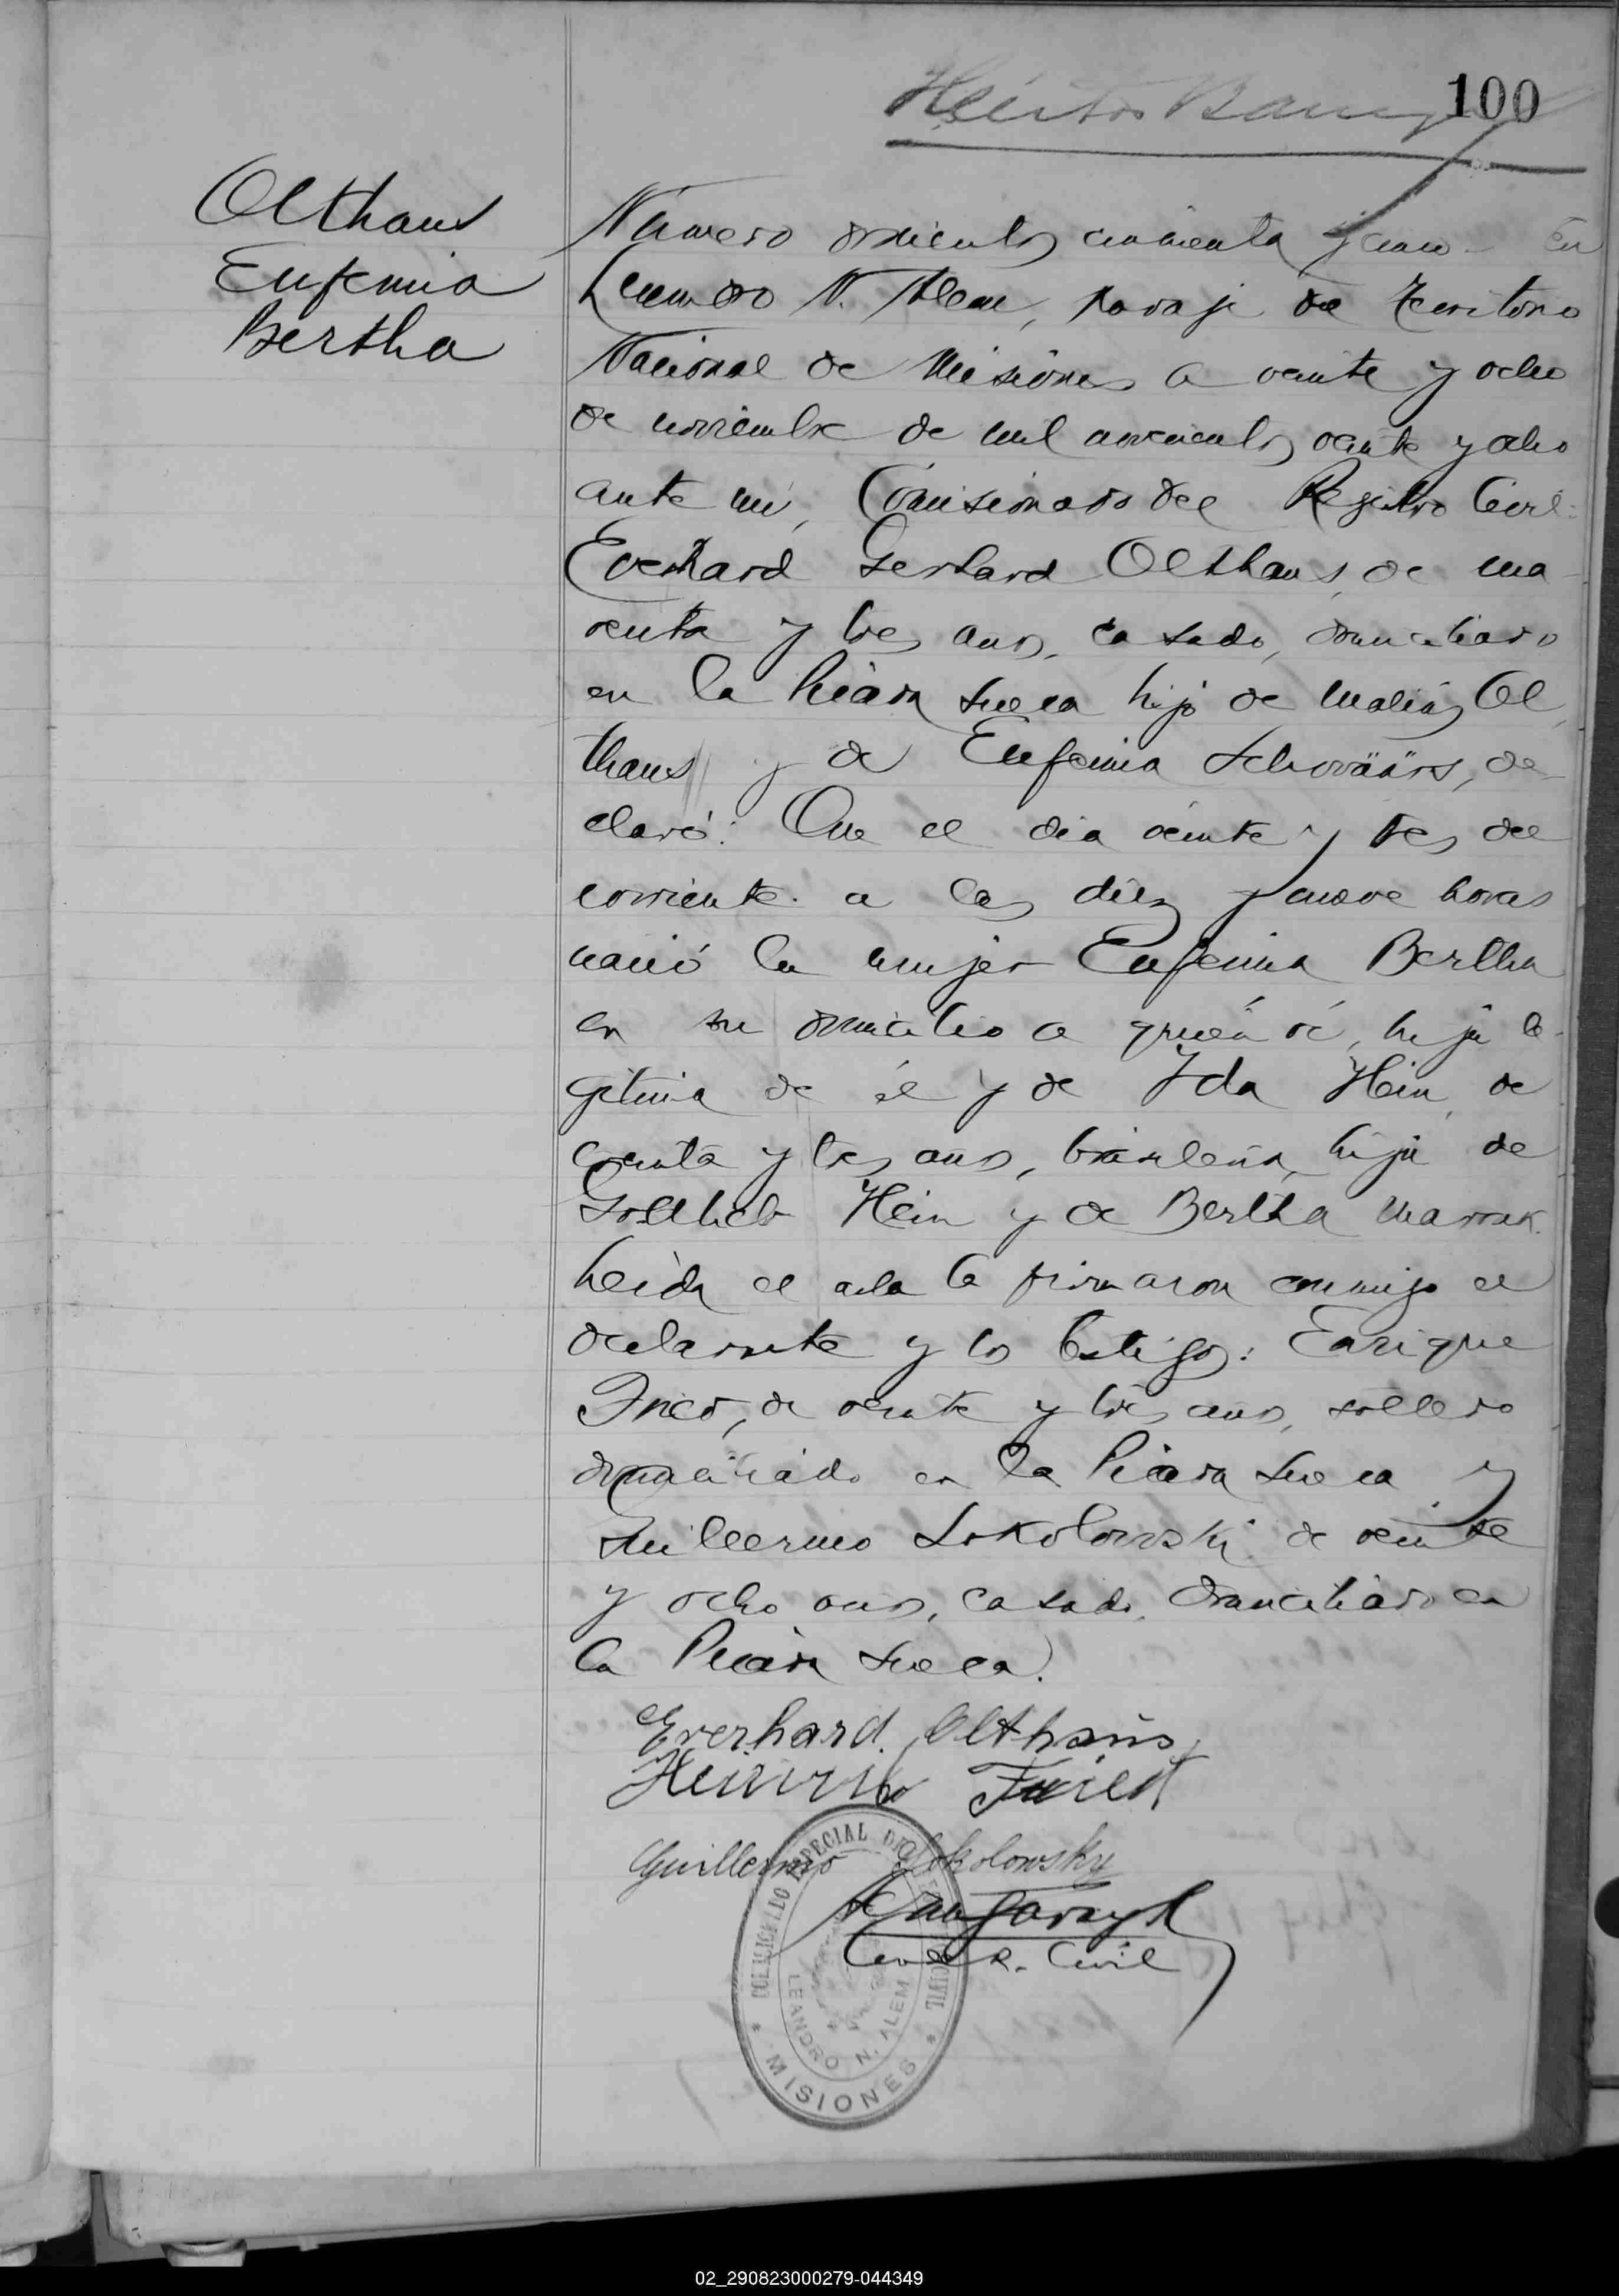 100
Olthaus
Eufemia
Bertha
Número doscientos cincuenta y cinco En
Leandro N. Alem, paraje de Territorio
Nacional de Misiones a veinte y ocho
de noviembre de mil novecientos veinte y ocho
ante mí, Comisionado del Registro Civil:
Everhard Gerhard Olthaus, de cua
renta y tres años, casado, domiciliado
en la Picada Sueca hijo de Matias Ol
thaus y de Eufemia Schoväärs, de
claró: Que el día veinte y tres del
corriente a las diez y nueve horas
nació la mujer Eufemia Bertha
en su domicilio a quién ví, hija le
gitima de él y de Ida Hein, de
treinta y tres años, brasileña, hija de
Gottlieb Hein y de Bertha
Leída el acta la firmaron conmigo el
declarante y los testigos: Enrique
de veinte y tres años, soltero
domiciliado en la Picada Sueca y
Guillermo Sokolowski de veinte
y ocho años, casado, domiciliado en
la Picada Sueca.
Everhard Olthaus
Guillermo Sokolowsky
R. Civil
ESPECIAL
CIVIL
LEANDRO N. ALEM
* MISIONES *
02_290823000279-044349